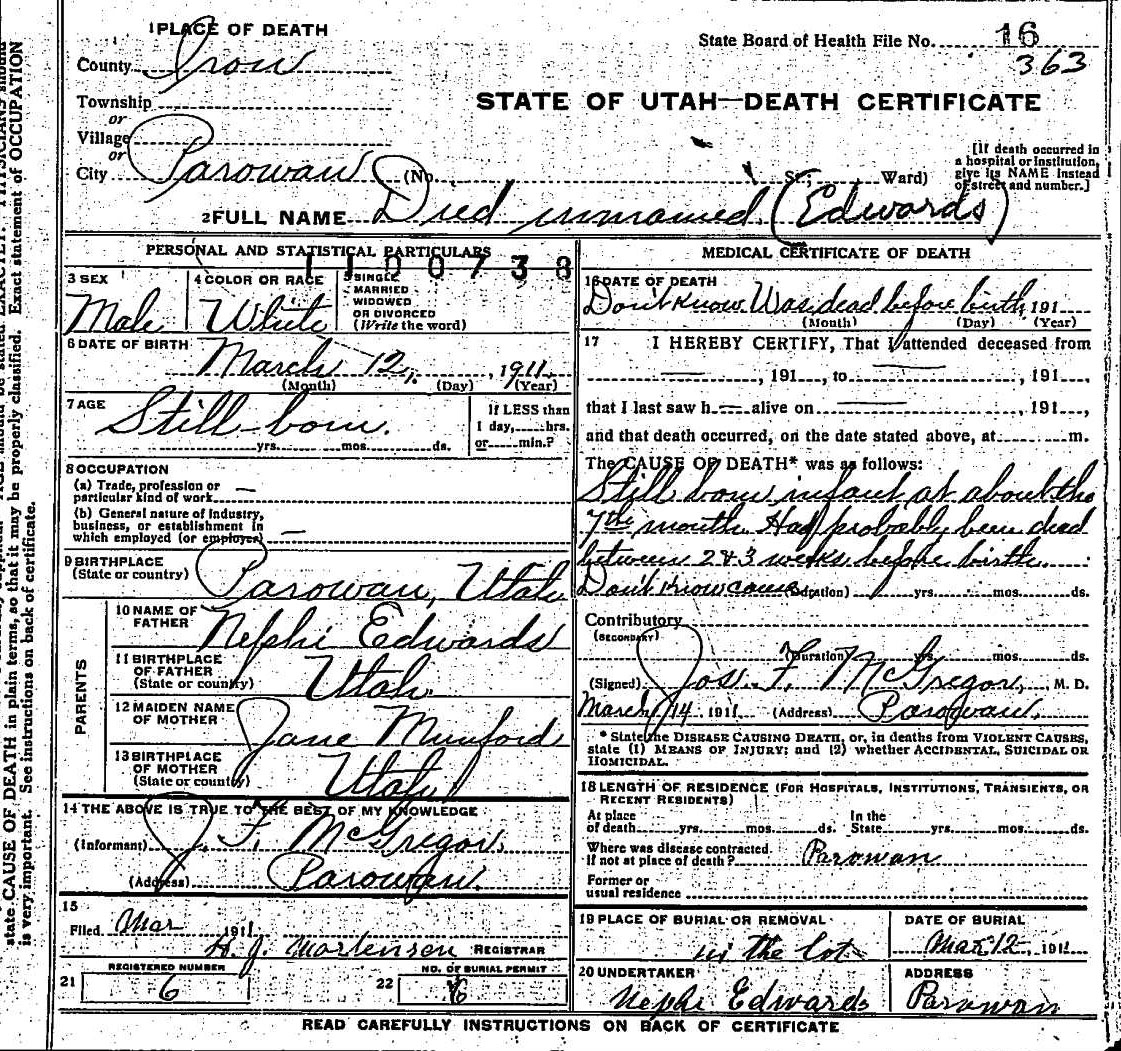 1 PLACE OF DEATH
State Board of Health File No. 16
363
County Iron
Township
or
Village
or
City Parowan (No. St.; Ward)
STATE OF UTAH—DEATH CERTIFICATE
[If death occurred in
a hospital or institution,
give its NAME instead
of street and number.]
2 FULL NAME Died unnamed (Edwards)
PERSONAL AND STATISTICAL PARTICULARS
1100738
3 SEX
Male
4 COLOR OR RACE
White
5 SINGLE
MARRIED
WIDOWED
OR DIVORCED
(Write the word)
6 DATE OF BIRTH
March 12, 1911
(Month) (Day) (Year)
7 AGE
Still-born.
yrs. mos. ds.
If LESS than
1 day, hrs.
or min.?
8 OCCUPATION
(a) Trade, profession or
particular kind of work —
(b) General nature of industry,
business, or establishment in
which employed (or employer) —
9 BIRTHPLACE
(State or country) Parowan, Utah
PARENTS
10 NAME OF
FATHER Nephi Edwards
11 BIRTHPLACE
OF FATHER
(State or country) Utah.
12 MAIDEN NAME
OF MOTHER Jane Munford
13 BIRTHPLACE
OF MOTHER
(State or country) Utah
14 THE ABOVE IS TRUE TO THE BEST OF MY KNOWLEDGE
(Informant) J. F. McGregor.
(Address) Parowan.
15
Filed Mar 1911
H. J. Mortensen REGISTRAR
REGISTERED NUMBER
21 6
NO. OF BURIAL PERMIT
22 6
MEDICAL CERTIFICATE OF DEATH
16 DATE OF DEATH
Don't know Was dead before birth, 191
(Month) (Day) (Year)
17 I HEREBY CERTIFY, That I attended deceased from
, 191 , to , 191 ,
that I last saw h alive on , 191 ,
and that death occurred, on the date stated above, at m.
The CAUSE OF DEATH* was as follows:
Still born infant at about the
7th month. Had probably been dead
between 2 & 3 weeks before birth.
Don't know cause (Duration) yrs. mos. ds.
Contributory
(SECONDARY)
(Duration) yrs. mos. ds.
(Signed) Jos. F. McGregor, M. D.
March 14 1911 (Address) Parowan.
* State the DISEASE CAUSING DEATH, or, in deaths from VIOLENT CAUSES,
state (1) MEANS OF INJURY; and (2) whether ACCIDENTAL, SUICIDAL OR
HOMICIDAL.
18 LENGTH OF RESIDENCE (FOR HOSPITALS, INSTITUTIONS, TRANSIENTS, OR
RECENT RESIDENTS)
At place
of death yrs. mos. ds. In the
State yrs. mos. ds.
Where was disease contracted.
If not at place of death? Parowan
Former or
usual residence
19 PLACE OF BURIAL OR REMOVAL
in the lot
DATE OF BURIAL
Mar 12, 1911
20 UNDERTAKER
Nephi Edwards
ADDRESS
Parowan
READ CAREFULLY INSTRUCTIONS ON BACK OF CERTIFICATE
state CAUSE OF DEATH in plain terms, so that it may be properly classified. Exact statement of OCCUPATION
is very important. See instructions on back of certificate.